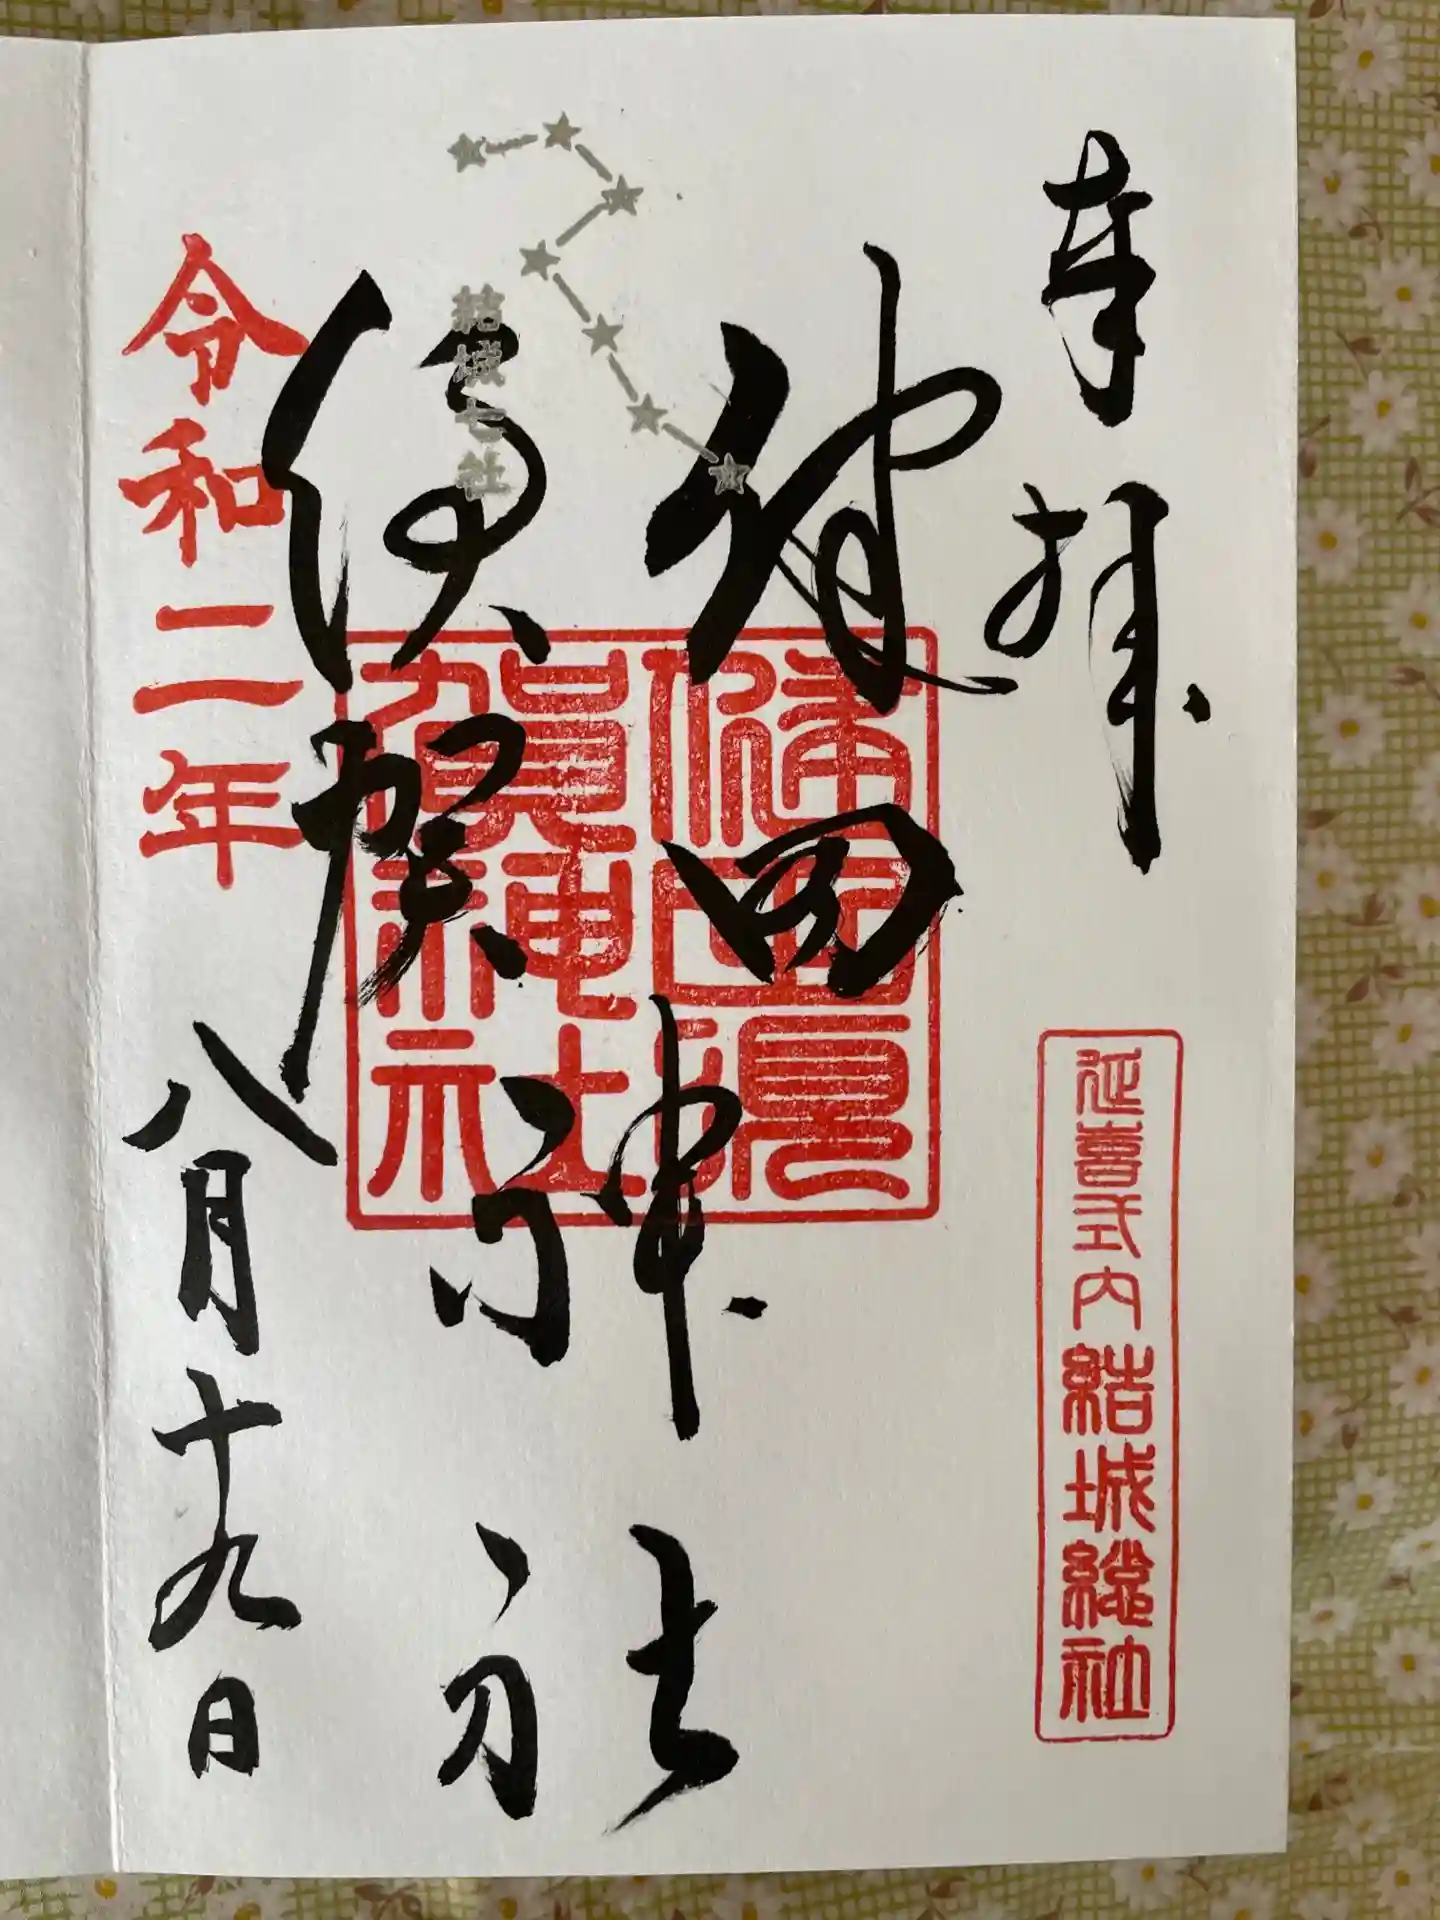 奉拝
延喜式内結城総社
健田神社
須賀神社
健田須
賀神社
結城七社
令和二年八月十九日